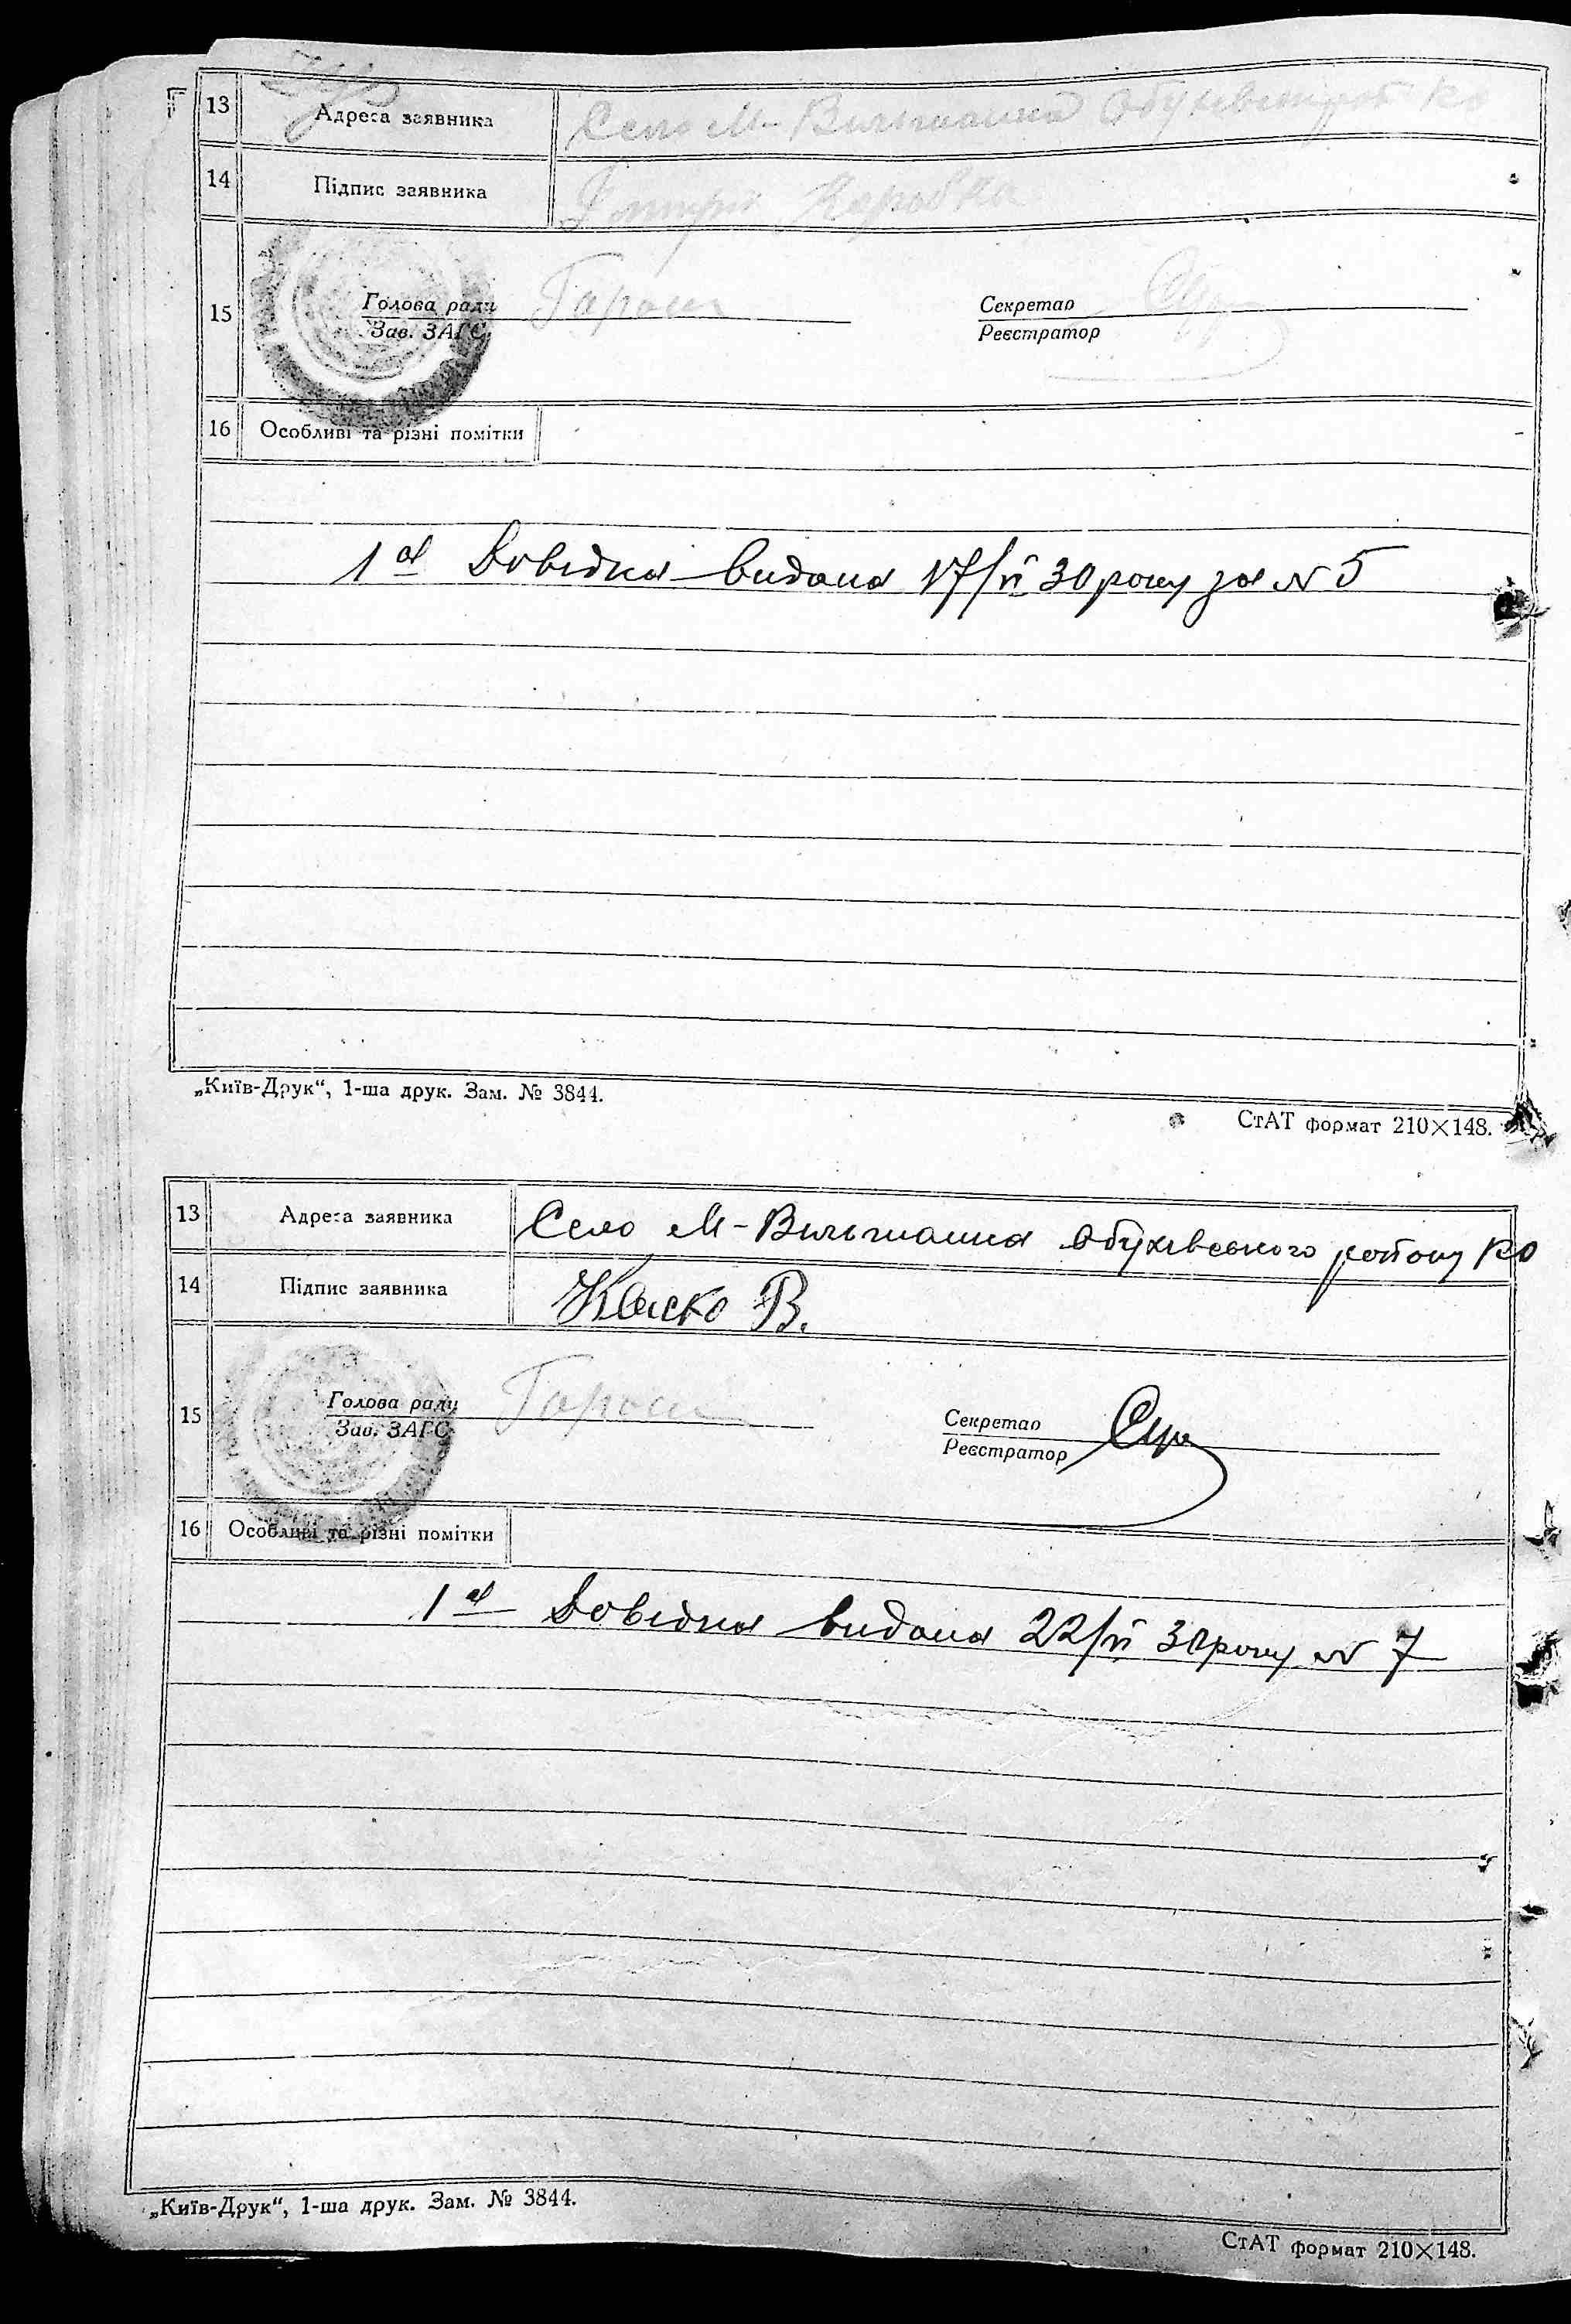 13 Адреса заявника Село М-Вильшанка Обухівськ рай КО
14 Підпис заявника Дмитро Коробка
15 Голова ради Секретар
Зав. ЗАГС Реєстратор
16 Особливі та різні помітки
1а Довідка видана 17/VI 30 року за N 5
„Київ-Друк“, 1-ша друк. Зам. № 3844.
СтАТ формат 210×148.
13 Адреса заявника Село М-Вильшанка Обухівського району КО
14 Підпис заявника В.
15 Голова ради Секретар
Зав. ЗАГС Реєстратор
16 Особливі та різні помітки
1а Довідка видана 22/VI 30 року N 7
„Київ-Друк“, 1-ша друк. Зам. № 3844.
СтАТ формат 210×148.